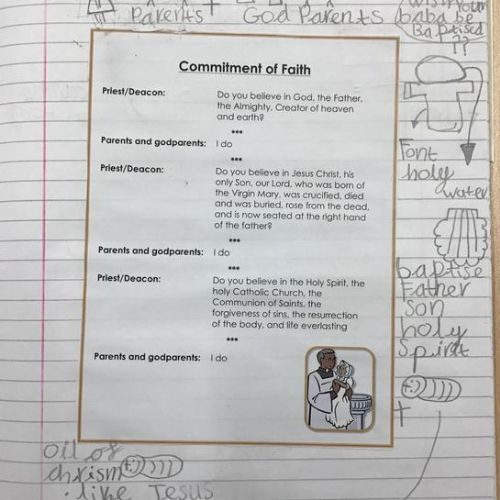 Parents + God Parents
wish your
baba be
Baptised
??
Commitment of Faith
Priest/Deacon: Do you believe in God, the Father,
the Almighty, Creator of heaven
and earth?
***
Parents and godparents: I do
***
Priest/Deacon: Do you believe in Jesus Christ, his
only Son, our Lord, who was born of
the Virgin Mary, was crucified, died
and was buried, rose from the dead,
and is now seated at the right hand
of the father?
***
Parents and godparents: I do
***
Priest/Deacon: Do you believe in the Holy Spirit, the
holy Catholic Church, the
Communion of Saints, the
forgiveness of sins, the resurrection
of the body, and life everlasting
***
Parents and godparents: I do
Font
holy
water
baptise
Father
Son
holy
Spirit
oil of
chrism
like Jesus